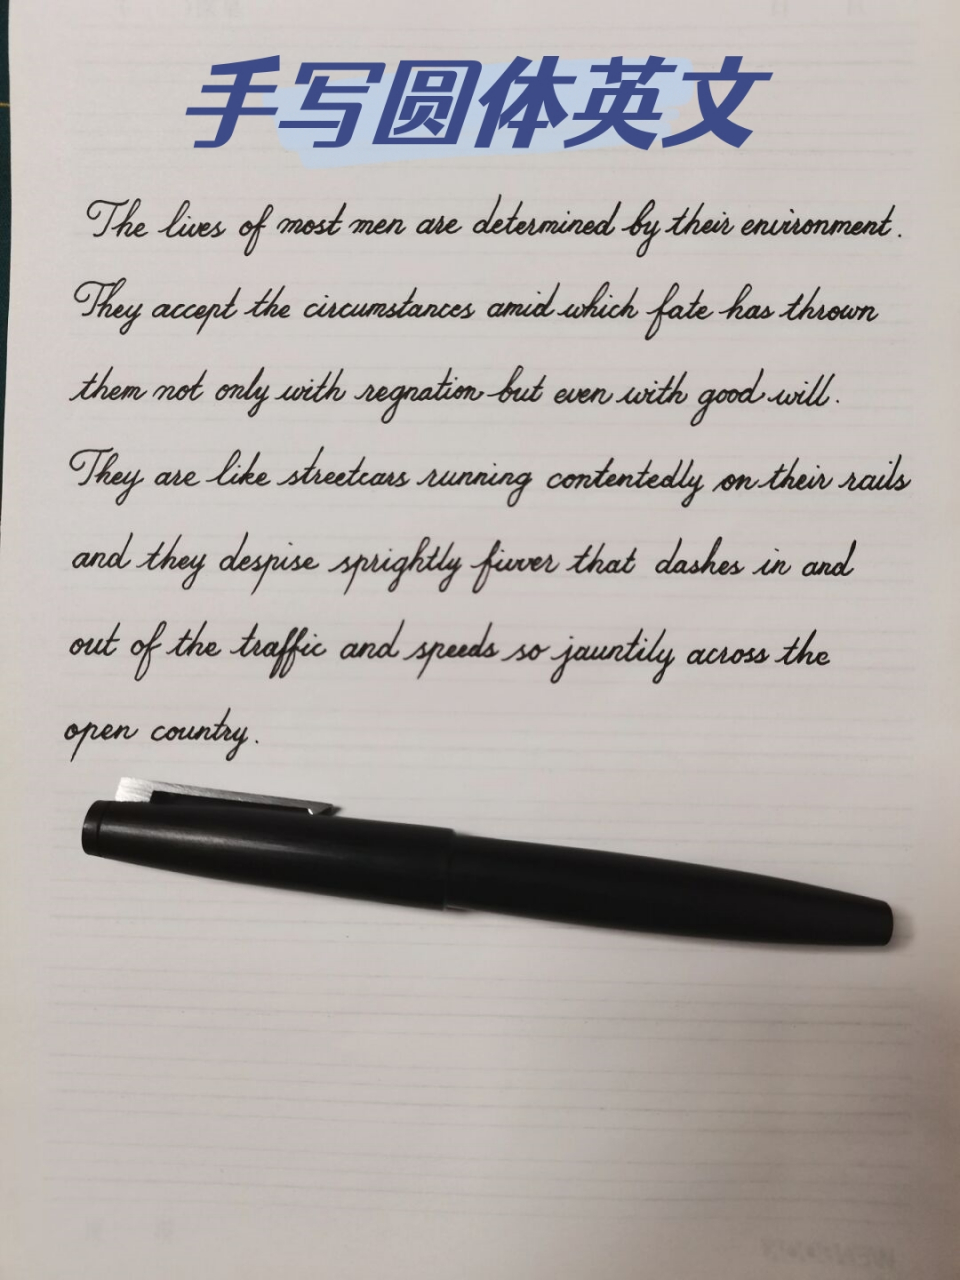 手写圆体英文
The lives of most men are determined by their environment.
They accept the circumstances amid which fate has thrown
them not only with regnation but even with good will.
They are like streetcars running contentedly on their rails
and they despise sprightly fivver that dashes in and
out of the traffic and speeds so jauntily across the
open country.